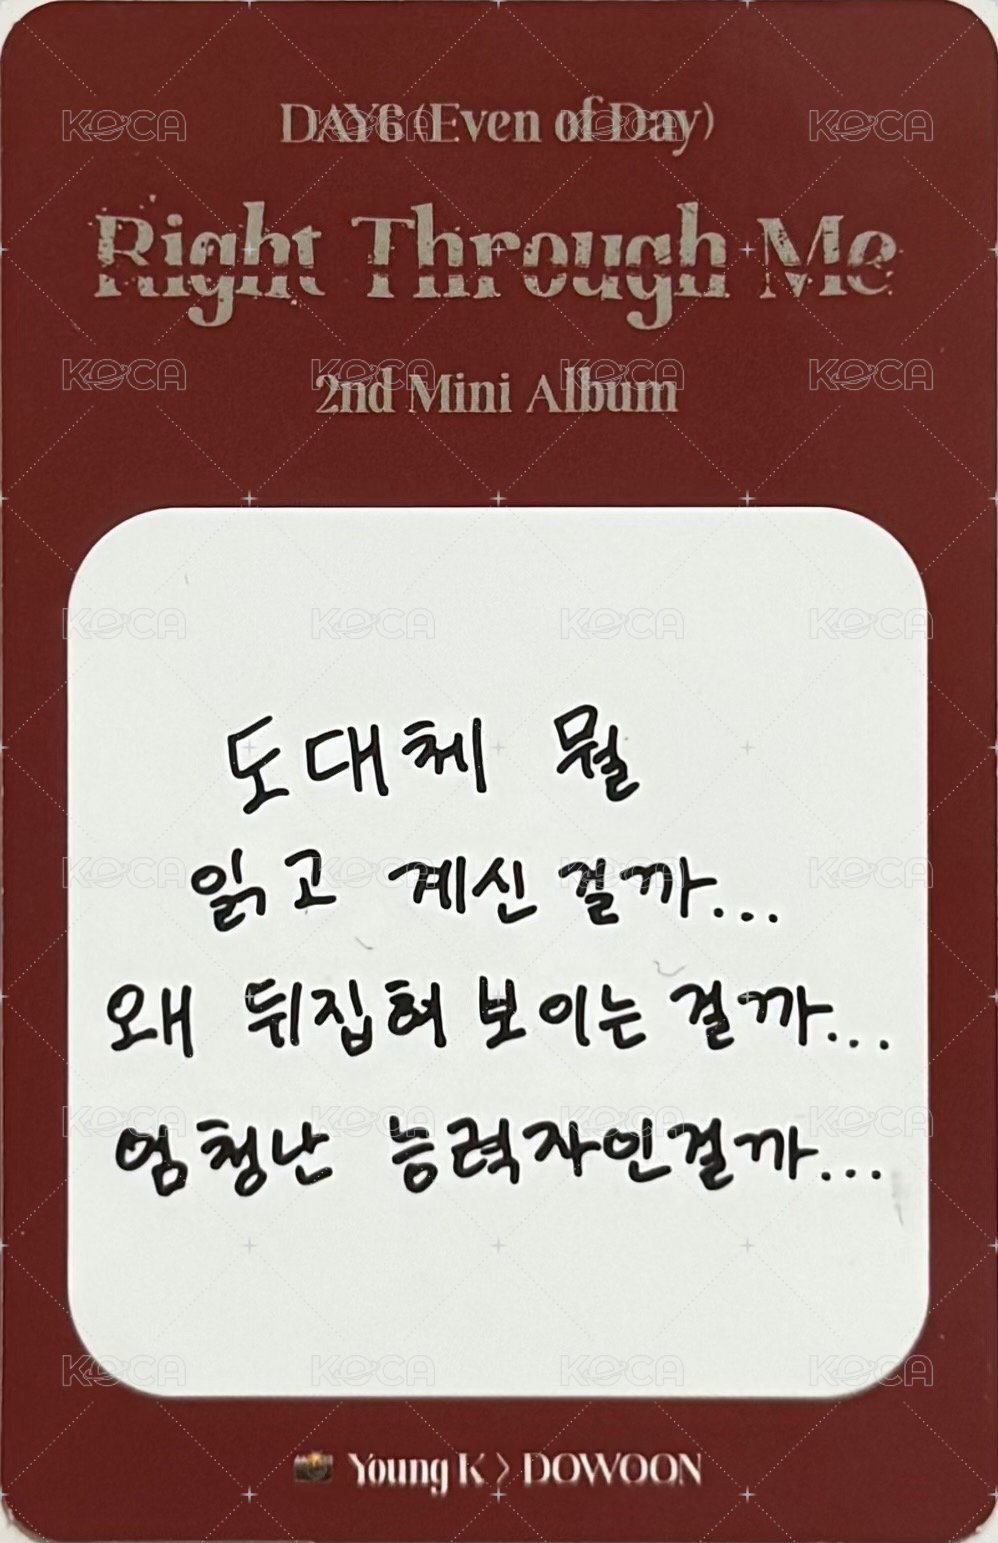 DAY6 (Even of Day)
Right Through Me
2nd Mini Album
도대체 뭘
읽고 계신걸까...
왜 뒤집혀 보이는 걸까...
엄청난 능력자인걸까...
Young K > DOWOON
KOCA KOCA KOCA KOCA
KOCA KOCA KOCA KOCA
KOCA KOCA KOCA KOCA
KOCA KOCA KOCA KOCA
KOCA KOCA KOCA KOCA
KOCA KOCA KOCA KOCA